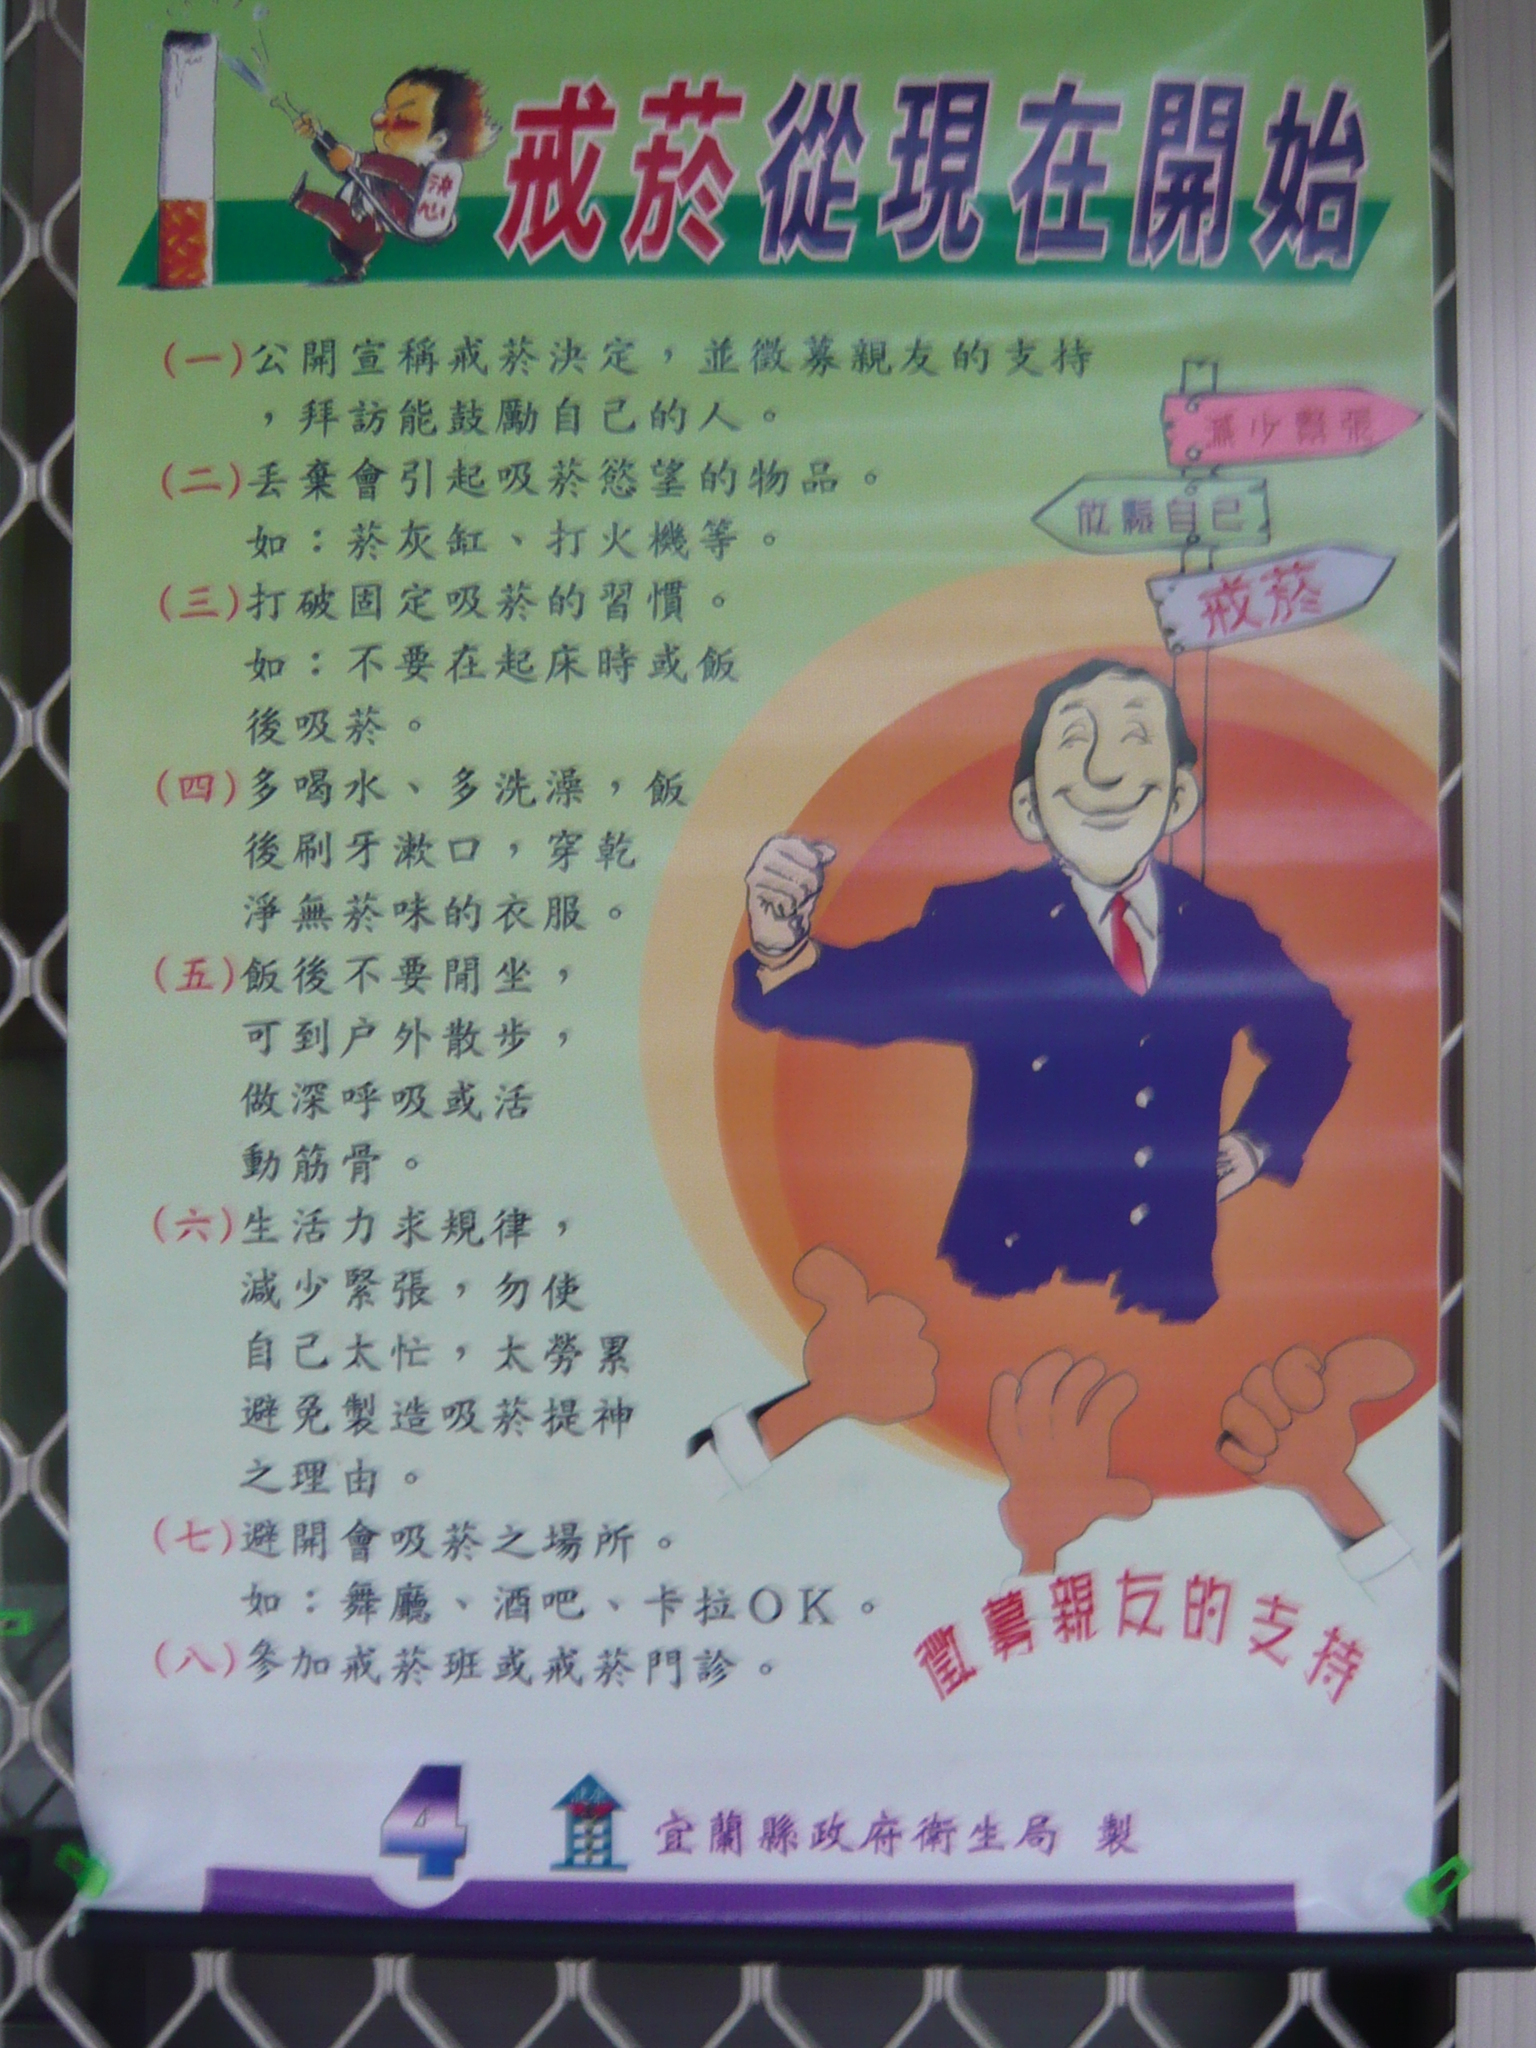 戒菸從現在開始
決心
(一)公開宣稱戒菸決定，並徵募親友的支持
，拜訪能鼓勵自己的人。
(二)丟棄會引起吸菸慾望的物品。
如：菸灰缸、打火機等。
(三)打破固定吸菸的習慣。
如：不要在起床時或飯
後吸菸。
(四)多喝水、多洗澡，飯
後刷牙漱口，穿乾
淨無菸味的衣服。
(五)飯後不要閒坐，
可到戶外散步，
做深呼吸或活
動筋骨。
(六)生活力求規律，
減少緊張，勿使
自己太忙，太勞累
避免製造吸菸提神
之理由。
(七)避開會吸菸之場所。
如：舞廳、酒吧、卡拉OK。
(八)參加戒菸班或戒菸門診。
減少緊張
放鬆自己
戒菸
徵募親友的支持
4
宜蘭縣政府衛生局 製